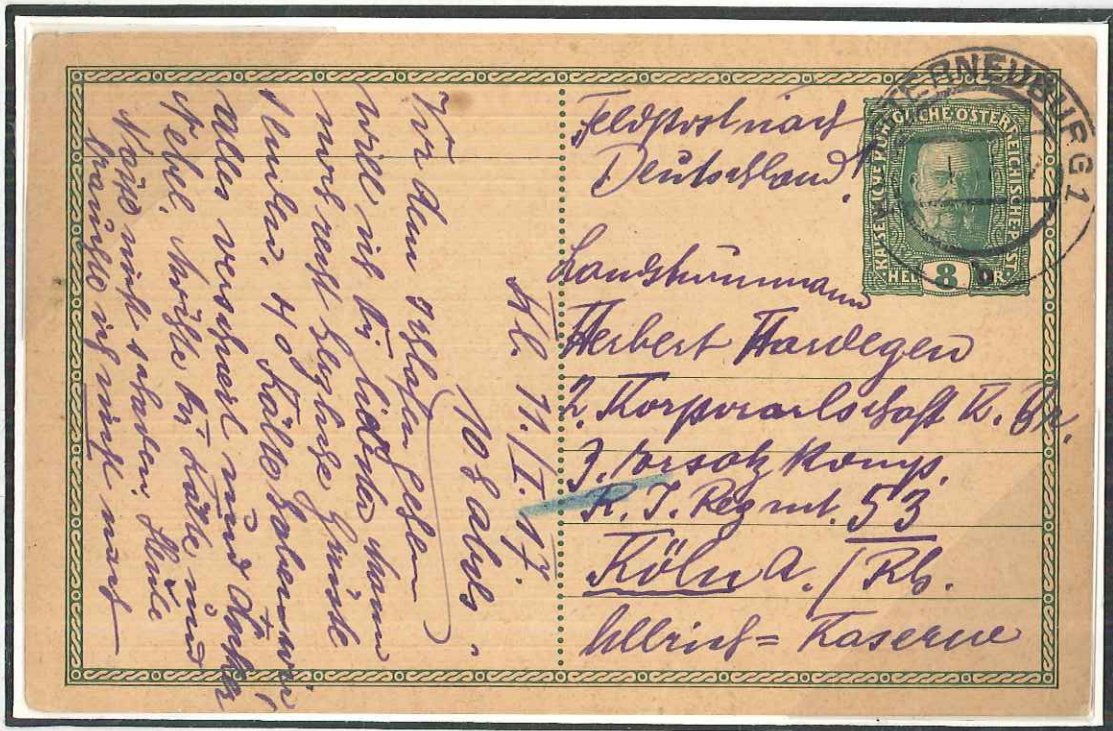 Feldpost nach
Deutschland!
KAISERLICHE KÖNIGLICHE ÖSTERREICHISCHE POST
8
HELLER
TERNEUBURG 1
b
Landstürmmann
Herbert Hardegen
2. Korporalschaft K. Br.
3. Ersatz Komp.
R. I. Regmt. 53
Köln a./Rh.
Ullrich = Kaserne
Kl. 11./I. 17.
10 h abds.
Vor dem schlafen gehen
will ich Dir, lieber Mann
noch recht herzliche Grüße
senden. 4° Kälte haben wir
alles verschneit und dicker
Nebel.
Kälte und
Nässe nicht schaden. Heute
brauchte ich nicht nach